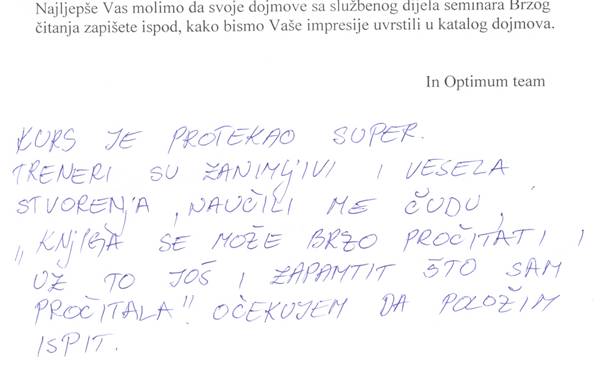 Najljepše Vas molimo da svoje dojmove sa službenog dijela seminara Brzog
čitanja zapišete ispod, kako bismo Vaše impresije uvrstili u katalog dojmova.
In Optimum team
KURS JE PROTEKAO SUPER.
TRENERI SU ZANIMLJIVI I VESELA
STVORENJA, NAUČILI ME ČUDU,
„KNJIGA SE MOŽE BRZO PROČITATI I
UZ TO JOŠ I ZAPAMTIT ŠTO SAM
PROČITALA“! OČEKUJEM DA POLOŽIM
ISPIT.